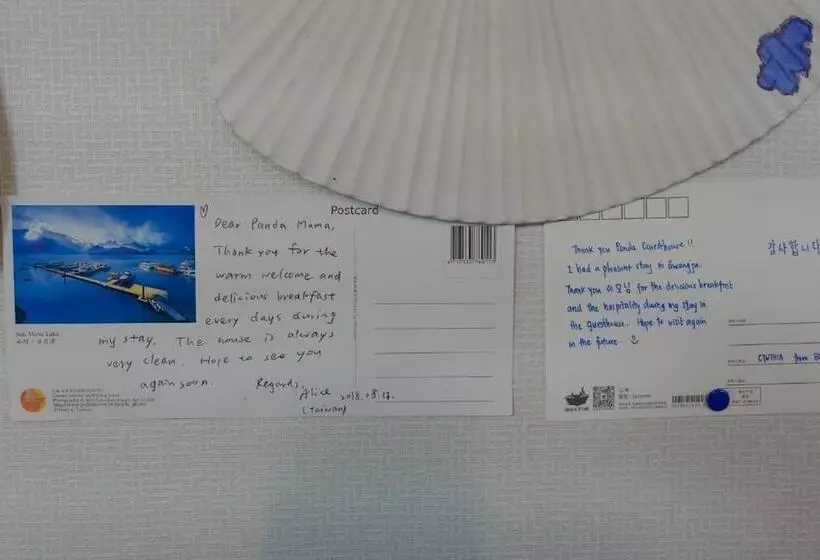 Postcard
Dear Panda Mama,
Thank you for the
warm welcome and
delicious breakfast
every days during
my stay. The house is always
very clean. Hope to see you
again soon.
Regards,
Alice 2018.08.17.
(Taiwan)
Sun Moon Lake
Thank you Panda Guesthouse!!
I had a pleasant stay in Gwangju.
Thank you 이모님 for the delicious breakfast
and the hospitality during my stay in
the guesthouse. Hope to visit again
in the future.
감사합니다
CYNTHIA from